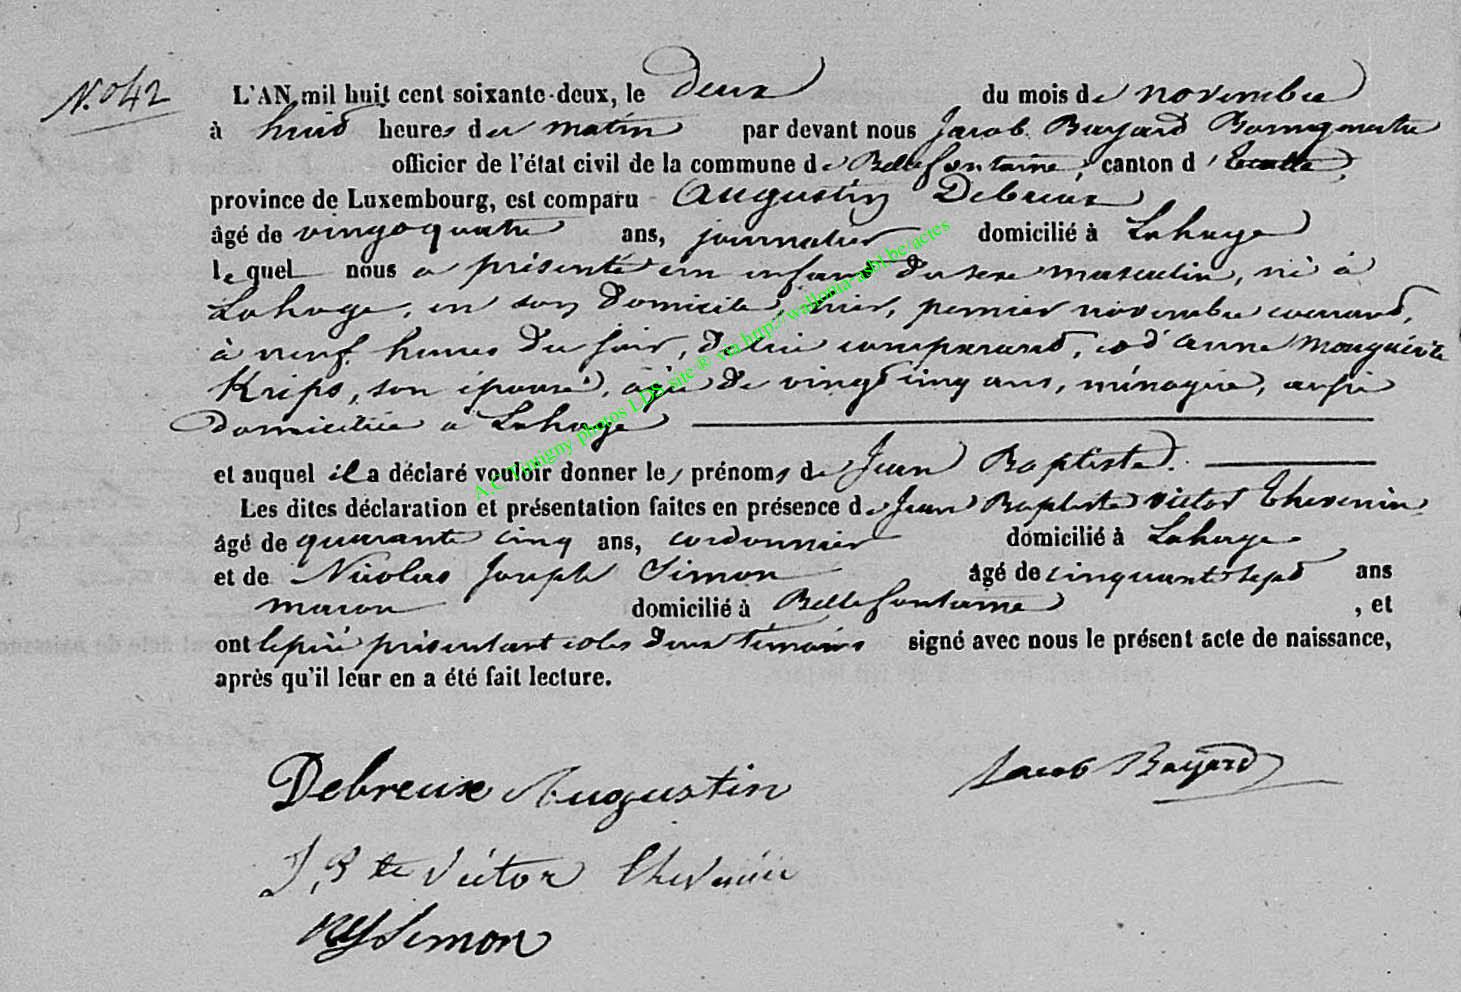 N.° 42
L'AN mil huit cent soixante-deux, le deux du mois de novembre
à huit heures du matin par devant nous Jacob Bayard Bourgmestre
officier de l'état civil de la commune de Bellefontaine, canton d'Etalle,
province de Luxembourg, est comparu Augustin Debreux
âgé de vingt quatre ans, journalier domicilié à Lahage
lequel nous a présenté un enfant du sexe masculin, né à
Lahage, en son domicile, hier, premier novembre courant,
à neuf heures du soir, de lui comparant, et d'anne Marguerite
Krips, son épouse, agée de vingt cinq ans, ménagère, aussi
domiciliée à Lahage
et auquel il a déclaré vouloir donner les prénoms de Jean Baptiste.
Les dites déclaration et présentation faites en présence de Jean Baptiste victor Thevenin
âgé de quarante cinq ans, cordonnier domicilié à Lahage
et de Nicolas Joseph Simon âgé de cinquante sept ans
macon domicilié à Bellefontaine , et
ont le père présentant et les deux témoins signé avec nous le présent acte de naissance,
après qu'il leur en a été fait lecture.
Debreux Augustin
Jacob Bayard
J. B te Victor Thevenin
NJ Simon
A.C. Tintigny photos LDS site ® via http://wallonia-asbl.be/actes